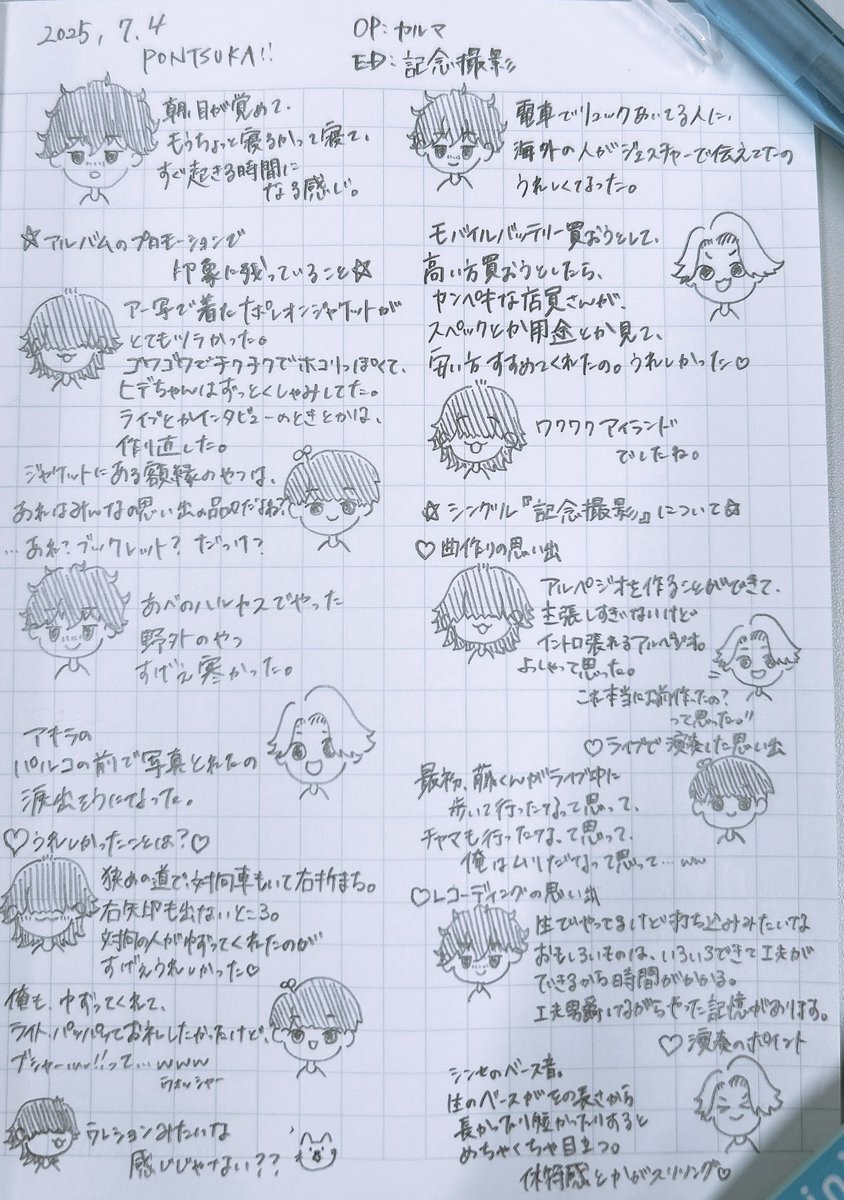 2025, 7.4
PONTSUKA!!
OP: カルマ
ED: 記念撮影
朝、目が覚めて、
もうちょっと寝るかって寝て、
すぐ起きる時間に
なる感じ。
☆アルバムのプロモーションで
印象に残っていること☆
アー写で着たナポレオンジャケットが
とてもツラかった。
ゴワゴワでチクチクでホコリっぽくて、
ヒデちゃんはずっとくしゃみしてた。
ライブとかインタビューのときとかは、
作り直した。
ジャケットにある額縁のやつは、
あれはみんなの思い出の品々だよね?
…あれ?ブックレット? だっけ?
あべのハルカスでやった
野外のやつ
すげえ寒かった。
アキラの
パルコの前で写真とれたの
涙出そうになった。
♡うれしかったことは?♡
狭めの道で、対向車もいて右折まち。
右矢印も出ないところ。
対向の人がゆずってくれたのが
すげえうれしかった♡
俺も、ゆずってくれて、
ライト、パッパッておれしたかったけど、
ブシャーッ!!って…www
ウォッシャー
ウレションみたいな
感じじゃない??
電車でリュックあいてる人に、
海外の人がジェスチャーで伝えてたの
うれしくなった。
モバイルバッテリー買おうとして、
高い方買おうとしたら、
カンペキな店員さんが、
スペックとか用途とか見て、
安い方すすめてくれたの。うれしかった♡
ワクワクアイランド
でしたね。
☆シングル『記念撮影』について☆
♡曲作りの思い出
アルペジオを作ることができて、
主張しすぎないけど
イントロ張れるアルペジオ。
よしゃって思った。
これ本当にお前作ったの?
って思った!!
♡ライブで演奏した思い出
最初、藤くんがライブ中に
歩いて行ったなって思って、
チャマも行ったな、て思って、
俺はムリだなって思って…ww
♡レコーディングの思い出
生でやってますけど打ち込みみたいな
おもしろいものは、いろいろできて工夫が
できるから時間がかかる。
工夫男爵しながらやった記憶があります。
♡演奏のポイント
シンセのベース音。
生のベースがその長さから
長かったり短かったりすると
めちゃくちゃ目立つ。
休符感とかがスリリング♡